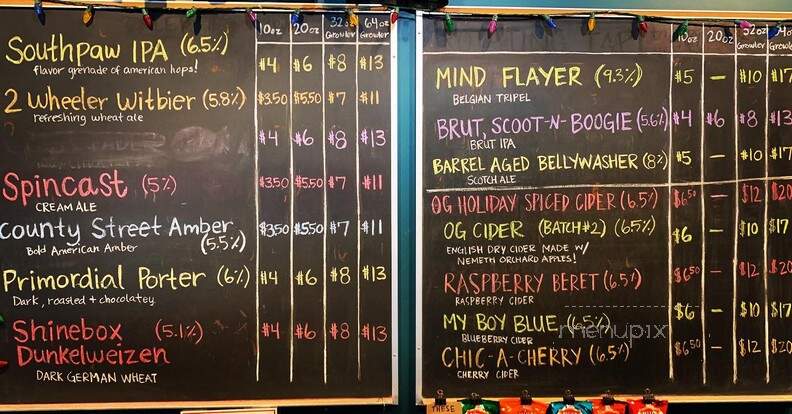 10oz 20oz 32oz 64oz
Growler Growler
Southpaw IPA (6.5%) $4 $6 $8 $13
flavor grenade of american hops!
2 Wheeler Witbier (5.8%) $3.50 $5.50 $7 $11
refreshing wheat ale
$4 $6 $8 $13
Spincast (5%) $3.50 $5.50 $7 $11
CREAM ALE
County Street Amber $3.50 $5.50 $7 $11
(5.5%)
Bold American Amber
Primordial Porter (6%) $4 $6 $8 $13
Dark, roasted + chocolatey
Shinebox (5.1%) $4 $6 $8 $13
Dunkelweizen
DARK GERMAN WHEAT
10oz 20oz 32oz 64oz
Growler Growler
MIND FLAYER (9.3%) $5 — $10 $17
BELGIAN TRIPEL
BRUT, SCOOT-N-BOOGIE (5.6%) $4 $6 $8 $13
BRUT IPA
BARREL AGED BELLYWASHER (8%) $5 — $10 $17
SCOTCH ALE
OG HOLIDAY SPICED CIDER (6.5%) $6.50 — $12 $20
OG CIDER (BATCH #2) (6.5%) $6 — $10 $17
ENGLISH DRY CIDER MADE W/
NEMETH ORCHARD APPLES!
RASPBERRY BERET (6.5%) $6.50 — $12 $20
RASPBERRY CIDER
MY BOY BLUE (6.5%) $6 — $10 $17
BLUEBERRY CIDER
CHIC-A-CHERRY (6.5%) $6.50 — $12 $20
CHERRY CIDER
menupix
THESE